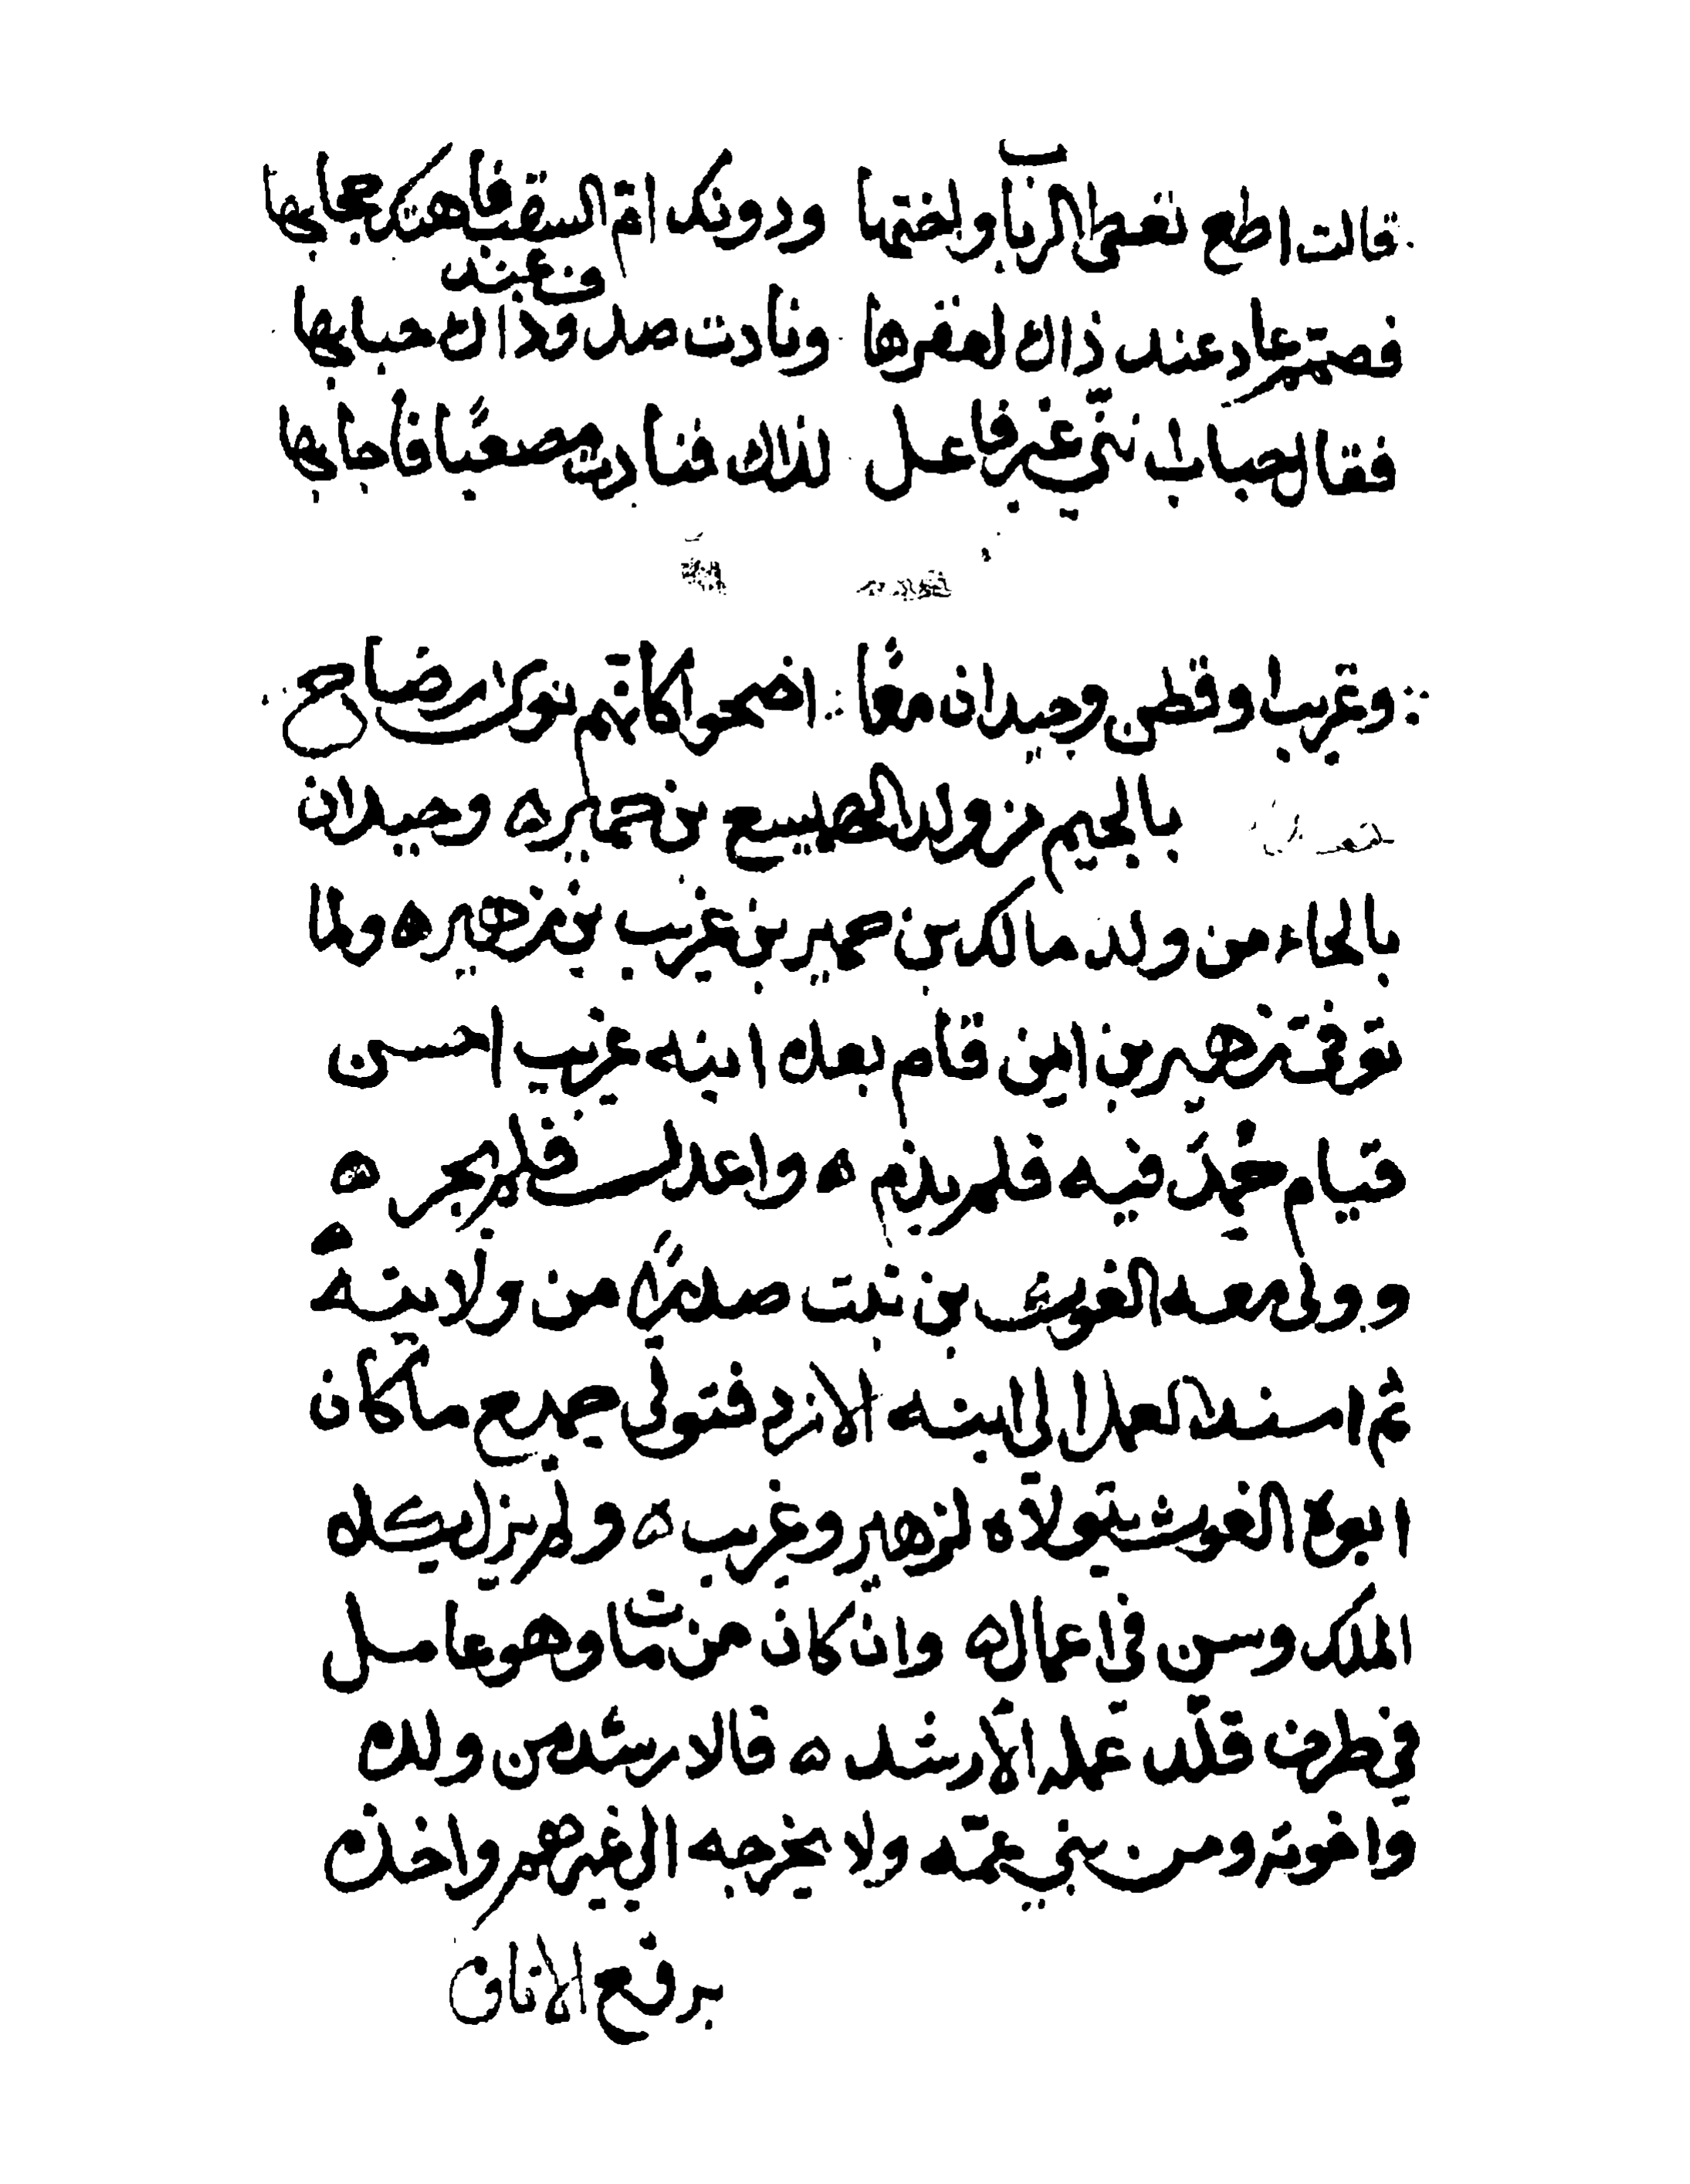 قالت اطع تعط الربآب واختها ودونك امّ السقب فاهتك حجابها
وعند
فصمّم عاد عند ذاك لعقرها ونادت صدوف ذاك حبابها
فقال حباب انّني غير فاعل لذاك فنادت مصعبًا فاجابها
وغريب او قطن وجيدان معًا اضحوا كانهم نوى رضاح
بالجيم من ولد الهميسع بن حمير ه وحيدان
بالحاء من ولد مالك بن حمير بن غريب بن زهير ه ولما
توفي زهير بن ايمن قام بعده ابنه غريب احسن
قيام حُمِدَ فيه فلم يذم ه واعدل فلم يجر ه
وولى معه الغوث بن نبت صدرًا من ولايته ه
ثم اسند العمل الى ابنه الازد فتولى جميع ما كان
ابوه الغوث يتولاه لزهير وغريب ه ولم يزل يكلاه
الملك وسن في اعماله وان كان من مات وهو عامل
في طرف قلّد عمله الأرشد ه فالارشد من ولده
واخوته ومن بني عمّه ولا يخرجه الى غيرهم واخذه
برفع الاتاوه